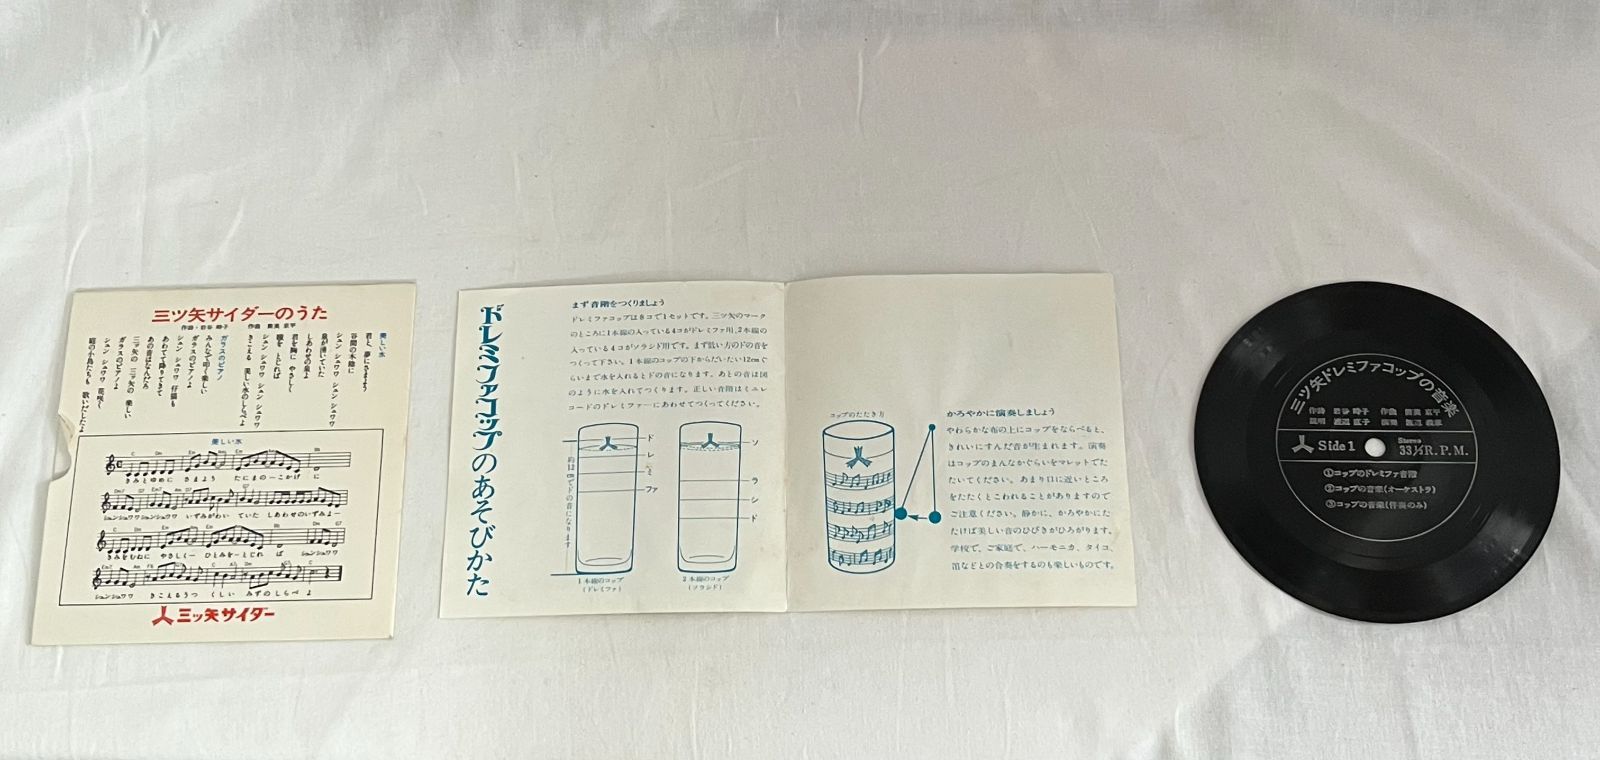 三ツ矢サイダーのうた
作詩・岩谷 時子　作曲 筒美 京平
美しい水
君と 夢にさまよう
谷間の木陰に
シュン シュワワ シュン シュワワ
泉が湧いていた
しあわせの泉よ
君を胸に やさしく
瞳を とじれば
シュン シュワワ シュン シュワワ
きこえる 美しい水のしらべよ
ガラスのピアノ
みんなで叩く楽しい
ガラスのピアノよ
シュン シュワワ 仔猫も
あわてて降りてきて
あの音はなんだろ
三ツ矢の 三ツ矢の 楽しい
ガラスのピアノよ
シュン シュワワ 花咲く
庭の小鳥たちも 歌いだしたよ
美しい水
きみとゆめに さまよう たにまの一こかげ に
シュンシュワワ シュンシュワワ いずみがわい ていた しあわせのいずみよー
きみをむねに やさしくー ひとみをーとじれ ば シュンシュワワ
シュンシュワワ きこえるうつ くしい みずのしらべ よ
三ツ矢サイダー
ドレミファコップのあそびかた
まず音階をつくりましょう
ドレミファコップは8コで1セットです。三ツ矢のマーク
のところに1本線の入っている4コがドレミファ用、2本線の
入っている4コがソラシド用です。まず低い方のドの音を
つくって下さい。1本線のコップの下からだいたい12cmぐ
らいまで水を入れるとドの音になります。あとの音は図
のように水を入れてつくります。正しい音階はミニレ
コードのドレミファーにあわせてつくってください。
ド
レ
ミ
ファ
約12cmでドの音になります
1本線のコップ
(ドレミファ)
ソ
ラ
シ
ド
2本線のコップ
(ソラシド)
コップのたたき方
かろやかに演奏しましょう
やわらかな布の上にコップをならべると、
きれいにすんだ音が生まれます。演奏
はコップのまんなかぐらいをマレットでた
たいてください。あまり口に近いところ
をたたくとこわれることがありますので
ご注意ください。静かに、かろやかにた
たけば美しい音のひびきがひろがります。
学校で、ご家庭で、ハーモニカ、タイコ、
笛などとの合奏をするのも楽しいものです。
三ツ矢ドレミファコップの音楽
作詩 岩谷 時子 作曲 筒美 京平
説明 渡辺 直子 演奏 渡辺
Side 1
Stereo
33⅓R.P.M.
①コップのドレミファ音階
②コップの音楽(オーケストラ)
③コップの音楽(伴奏のみ)